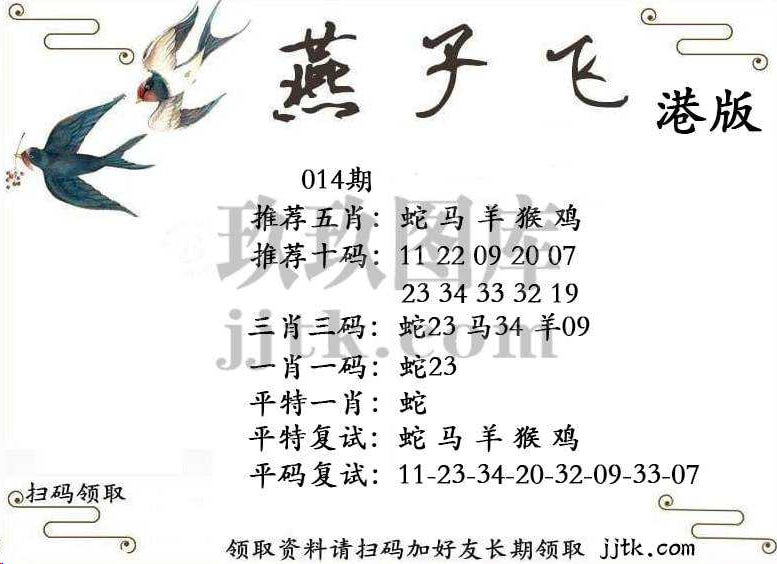 燕子飞
港版
014期
推荐五肖：蛇 马 羊 猴 鸡
推荐十码：11 22 09 20 07
23 34 33 32 19
三肖三码：蛇23 马34 羊09
一肖一码：蛇23
平特一肖：蛇
平特复试：蛇 马 羊 猴 鸡
平码复试：11-23-34-20-32-09-33-07
玖玖图库
jjtk.com
扫码领取
领取资料请扫码加好友长期领取 jjtk.com